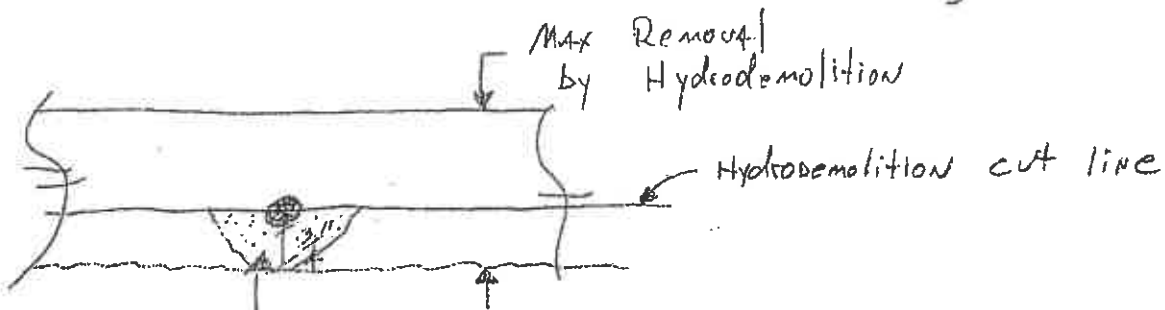 Max Removal
by Hydrodemolition
Hydrodemolition cut line